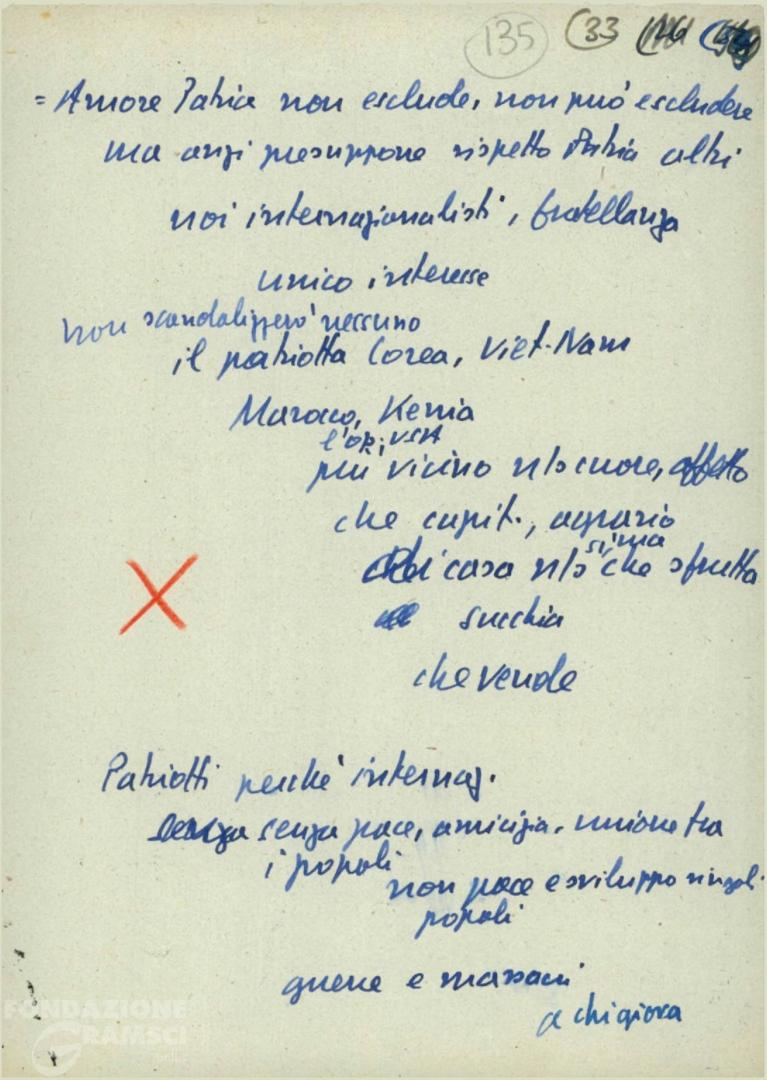 135 (33
= Amore Patria non esclude, non può escludere
ma anzi presuppone rispetto Patria altri
noi internazionalisti, fratellanza
unico interesse
non scandalizzerò nessuno
il patriotta Corea, Viet-Nam
Maroco, Kenia
l'op. USA
più vicino n/o cuore, affetto
che capit., agrario
di casa n/s che sfrutta
si, ma
succhia
che vende
Patriotti perché internaz.
senza pace, amicizia, unione tra
i popoli
non pace e sviluppo singoli
popoli
guerre e massacri
a chi giova
FONDAZIONE
GRAMSCI